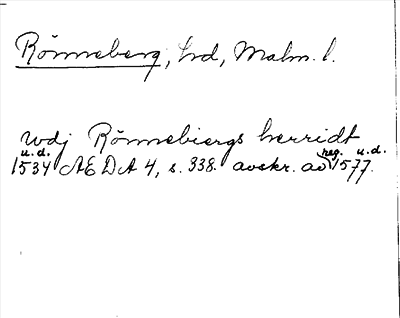 Rönneberg, hrd, Malm. l.
wdj Rönnebiergs herridt
u.d. reg. u.d.
1534 AEDA 4, s. 338. avskr. av 1577.